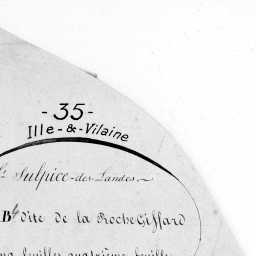 - 35 -
Ille - & - Vilaine
St Sulpice - des Landes ~
Bte dite de la Roche Giffard
feuilles quatrième feuille